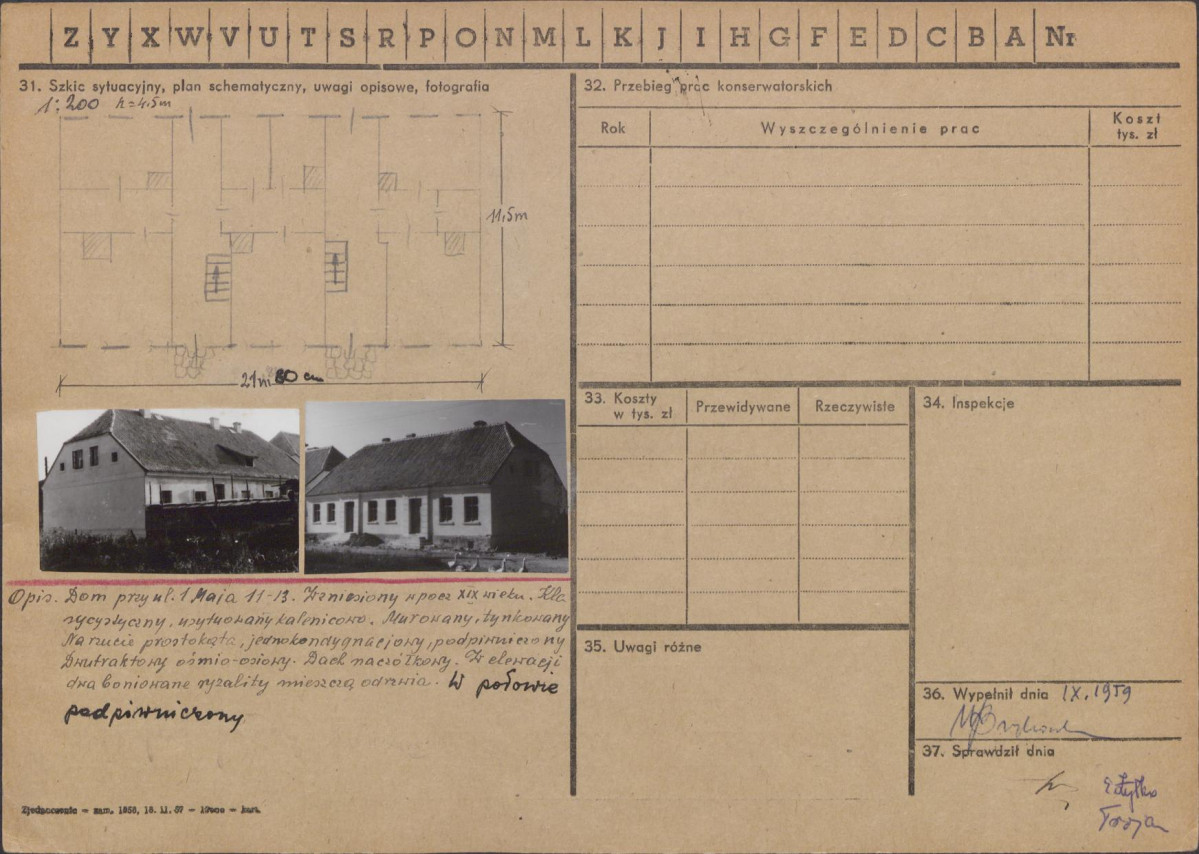 Z Y X W V U T S R P O N M L K J I H G F E D C B A Nr
31. Szkic sytuacyjny, plan schematyczny, uwagi opisowe, fotografia
1:200 h=4,5m
11,5m
21m 80 cm
Opis. Dom przy ul. 1 Maja 11-13. Wzniesiony w pocz XIX wieku. Kla
sycystyczny, usytuowany kalenicowo. Murowany, tynkowany
Na rzucie prostokąta, jednokondygnacjowy, podpiwniczony
Dwutraktowy ośmio-osiowy. Dach naczółkowy. W elewacji
dwa boniowane ryzality mieszczą odrzwia. W połowie
podpiwniczony
Zjednoczenie — zam. 1958, 18. 11. 57 — — kart.
32. Przebieg prac konserwatorskich
Rok
Wyszczególnienie prac
Koszt
tys. zł
33. Koszty
w tys. zł
Przewidywane
Rzeczywiste
34. Inspekcje
35. Uwagi różne
36. Wypełnił dnia IX. 1959
37. Sprawdził dnia
Trojan